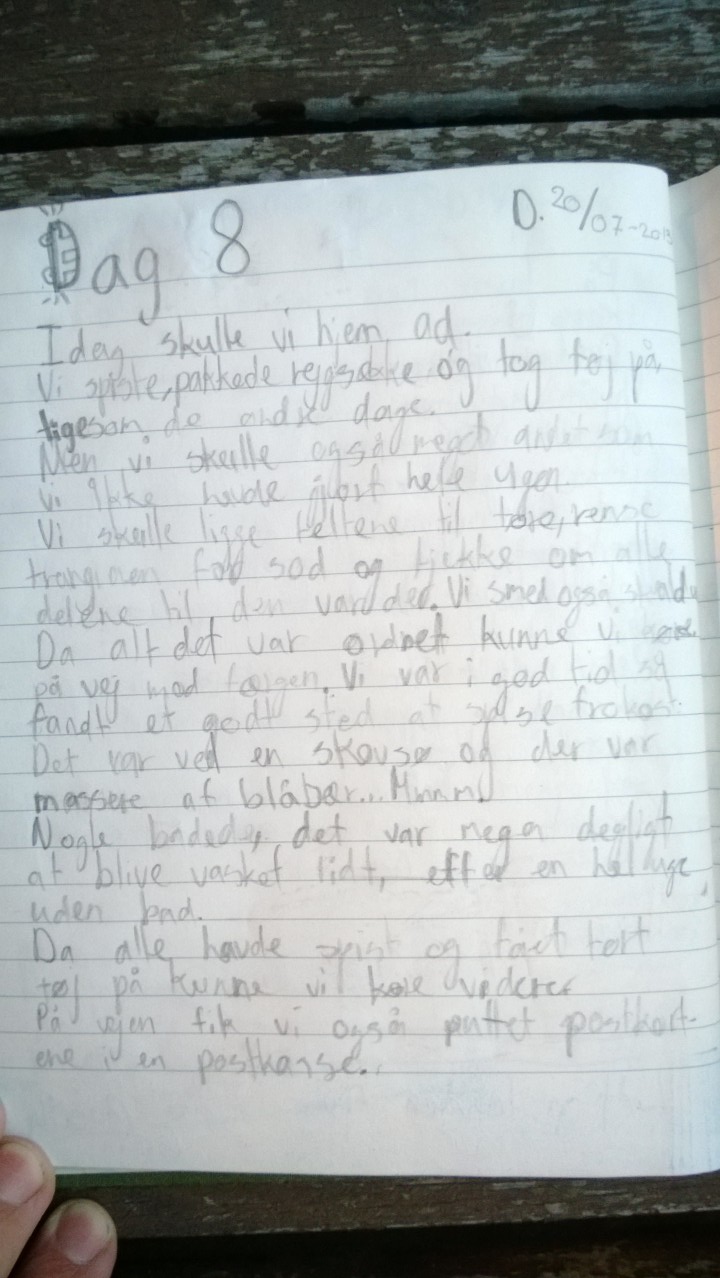 Dag 8
D. 20/07-2013
I dag skulle vi hjem ad.
Vi spiste, pakkede rejgsække og tog tøj på,
ligeson de andre dage.
Men vi skulle også meget andet som
vi ikke havde gjort hele ugen.
Vi skulle ligge teltene til tøre, rense
trangiaen for sod og tjekke om alle
delene til den var der. Vi smed også
Da alt det var ordnet kunne vi
på vej mod færgen. Vi var i god tid og
fandt et godt sted at spise frokost.
Det var ved en skovsø og der var
massere af blåbær... Mmmm!
Nogle badede, det var mega dejligt
at blive vasket lidt, efter en hel uge,
uden bad.
Da alle havde spist og fået tørt
tøj på kunne vi køre videre.
På vejen fik vi også puttet postkort-
ene i en postkasse.